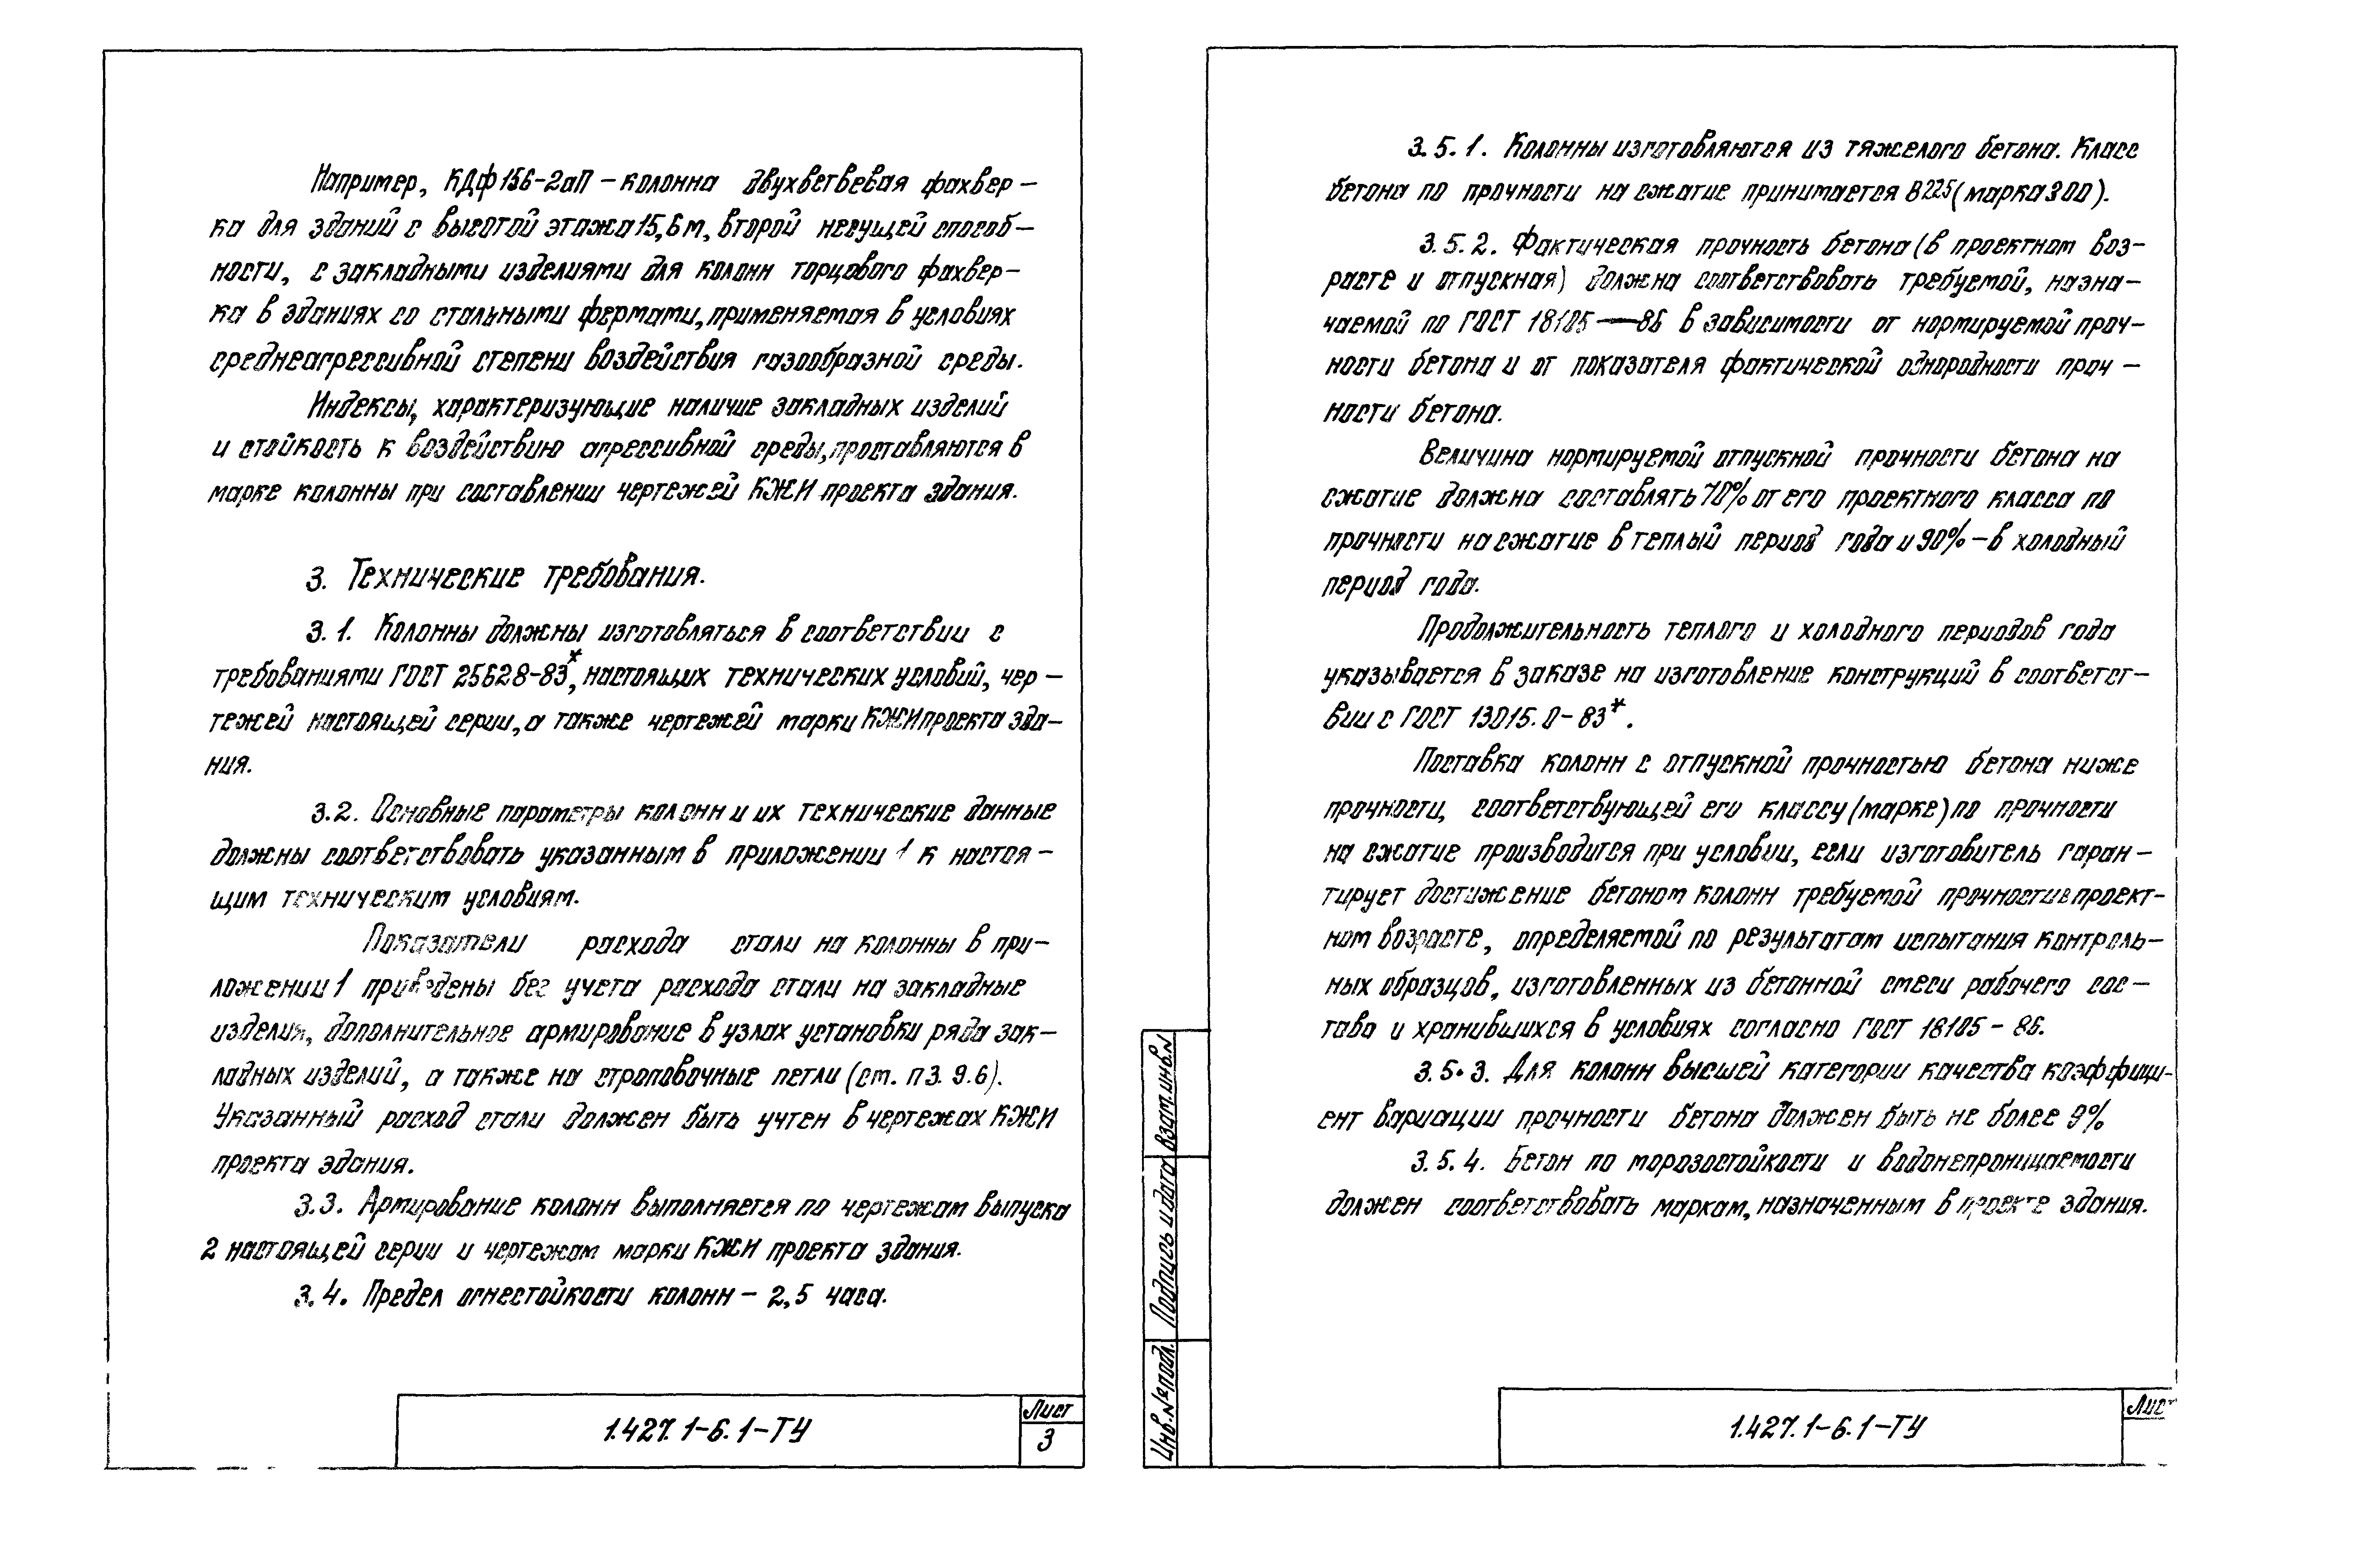 Например, КДФ156-2аП – колонна двухветвевая фахвер-
ка для зданий с высотой этажа 15,6м, второй несущей способ-
ности, с закладными изделиями для колонн торцового фахвер-
ка в зданиях со стальными фермами, применяемая в условиях
среднеагрессивной степени воздействия газообразной среды.
Индексы, характеризующие наличие закладных изделий
и стойкость к воздействию агрессивной среды, проставляются в
марке колонны при составлении чертежей КЖИ проекта здания.
3. Технические требования.
3.1. Колонны должны изготовляться в соответствии с
требованиями ГОСТ 25628-83*, настоящих технических условий, чер-
тежей настоящей серии, а также чертежей марки КЖИ проекта зда-
ния.
3.2. Основные параметры колонн и их технические данные
должны соответствовать указанным в приложении 1 к настоя-
щим техническим условиям.
Показатели расхода стали на колонны в при-
ложении 1 приведены без учета расхода стали на закладные
изделия, дополнительное армирование в узлах установки ряда зак-
ладных изделий, а также на строповочные петли (ст. п 3.9.6).
Указанный расход стали должен быть учтен в чертежах КЖИ
проекта здания.
3.3. Армирование колонн выполняется по чертежам выпуска
2 настоящей серии и чертежам марки КЖИ проекта здания.
3.4. Предел огнестойкости колонн – 2,5 часа.
1.427.1-6.1-ТУ
Лист
3
3.5.1. Колонны изготовляются из тяжелого бетона. Класс
бетона по прочности на сжатие принимается В 22,5 (марка 300).
3.5.2. Фактическая прочность бетона (в проектном воз-
расте и отпускная) должна соответствовать требуемой, назна-
чаемой по ГОСТ 18105—86 в зависимости от нормируемой проч-
ности бетона и от показателя фактической однородности проч-
ности бетона.
Величина нормируемой отпускной прочности бетона на
сжатие должна составлять 70% от его проектного класса по
прочности на сжатие в теплый период года и 90% – в холодный
период года.
Продолжительность теплого и холодного периодов года
указывается в заказе на изготовление конструкций в соответст-
вии с ГОСТ 13015.0-83*.
Поставка колонн с отпускной прочностью бетона ниже
прочности, соответствующей его классу (марке) по прочности
на сжатие производится при условии, если изготовитель гаран-
тирует достижение бетоном колонн требуемой прочности в проект-
ном возрасте, определяемой по результатам испытания контроль-
ных образцов, изготовленных из бетонной смеси рабочего сос-
тава и хранившихся в условиях согласно ГОСТ 18105-86.
3.5.3. Для колонн высшей категории качества коэффици-
ент вариации прочности бетона должен быть не более 9%
3.5.4. Бетон по морозостойкости и водонепроницаемости
должен соответствовать маркам, назначенным в проекте здания.
Инв.№ подл.
Подпись и дата
Взам.инв.N
1.427.1-6.1-ТУ
Лист